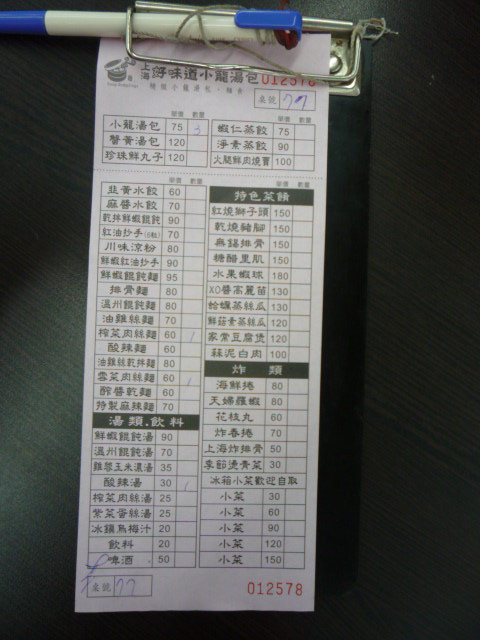 上海 好味道小籠湯包 012578
桌號 77
單價 數量 單價 數量
小籠湯包 75 3 蝦仁蒸餃 75
蟹黃湯包 120 淨素蒸餃 90
珍珠鮮丸子 120 火腿鮮肉燒賣 100
單價 數量 單價 數量
韭黃水餃 60
麻醬水餃 70
乾拌鮮蝦餛飩 90
紅油抄手(6粒) 70
川味涼粉 80
鮮蝦紅油抄手 90
鮮蝦餛飩麵 95
排骨麵 80
溫州餛飩麵 80
油雞絲麵 70
榨菜肉絲麵 60 1
酸辣麵 60
油雞絲乾拌麵 80
雪菜肉絲麵 60 1
酢醬乾麵 60
特製麻辣麵 70
湯類.飲料
鮮蝦餛飩湯 90
溫州餛飩湯 70
雞蓉玉米濃湯 35
酸辣湯 30 1
榨菜肉絲湯 25
紫菜蛋絲湯 25
冰鎮烏梅汁 20
飲料 20
啤酒 50
特色菜餚
紅燒獅子頭 150
乾燒豬腳 150
無錫排骨 150
糖醋里肌 150
水果蝦球 180
XO醬高麗苗 130
蛤蠣蒸絲瓜 130
鮮菇素蒸絲瓜 120
家常豆腐煲 120
蒜泥白肉 100
炸類
海鮮捲 80
天婦羅蝦 80
花枝丸 60
炸春捲 70
上海炸排骨 50
季節燙青菜 30
冰箱小菜歡迎自取
小菜 30
小菜 60
小菜 90
小菜 120
小菜 150
桌號 77 012578